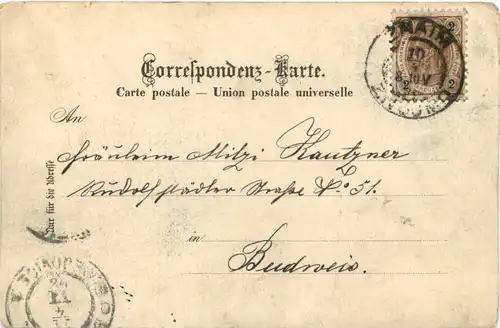 ZNAIM
ZNOJMO
2 2
Correspondenz-Karte.
Carte postale — Union postale universelle
An
Fräulein Mitzi Kautzner
Rudolfstädter Straße No 51.
Nur für die Adresse
in
Budweis.